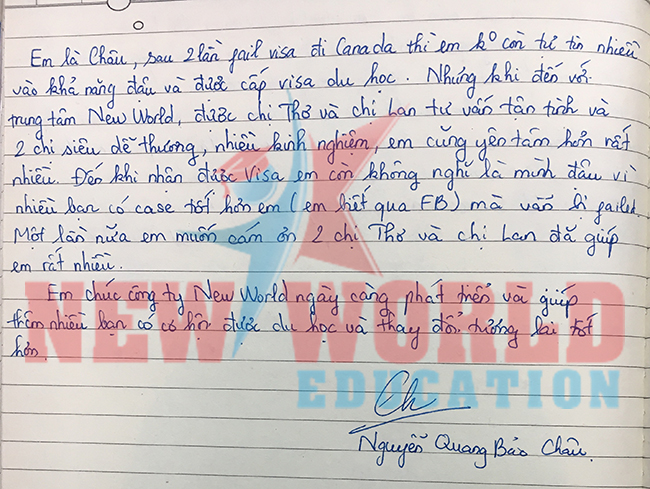 Em là Châu, sau 2 lần fail visa đi Canada thì em k° còn tự tin nhiều
vào khả năng đậu và được cấp visa du học. Nhưng khi đến với
trung tâm New World, được chị Thơ và chị Lan tư vấn tận tình và
2 chị siêu dễ thương, nhiều kinh nghiệm, em cũng yên tâm hơn rất
nhiều. Đến khi nhận được Visa em còn không nghĩ là mình đậu vì
nhiều bạn có case tốt hơn em (em biết qua FB) mà vẫn bị failed.
Một lần nữa em muốn cám ơn 2 chị Thơ và chị Lan đã giúp
em rất nhiều.
Em chúc công ty New World ngày càng phát triển và giúp
thêm nhiều bạn có cơ hội được du học và thay đổi tương lai tốt
hơn.
NEW WORLD
EDUCATION
Ch
Nguyễn Quang Bảo Châu